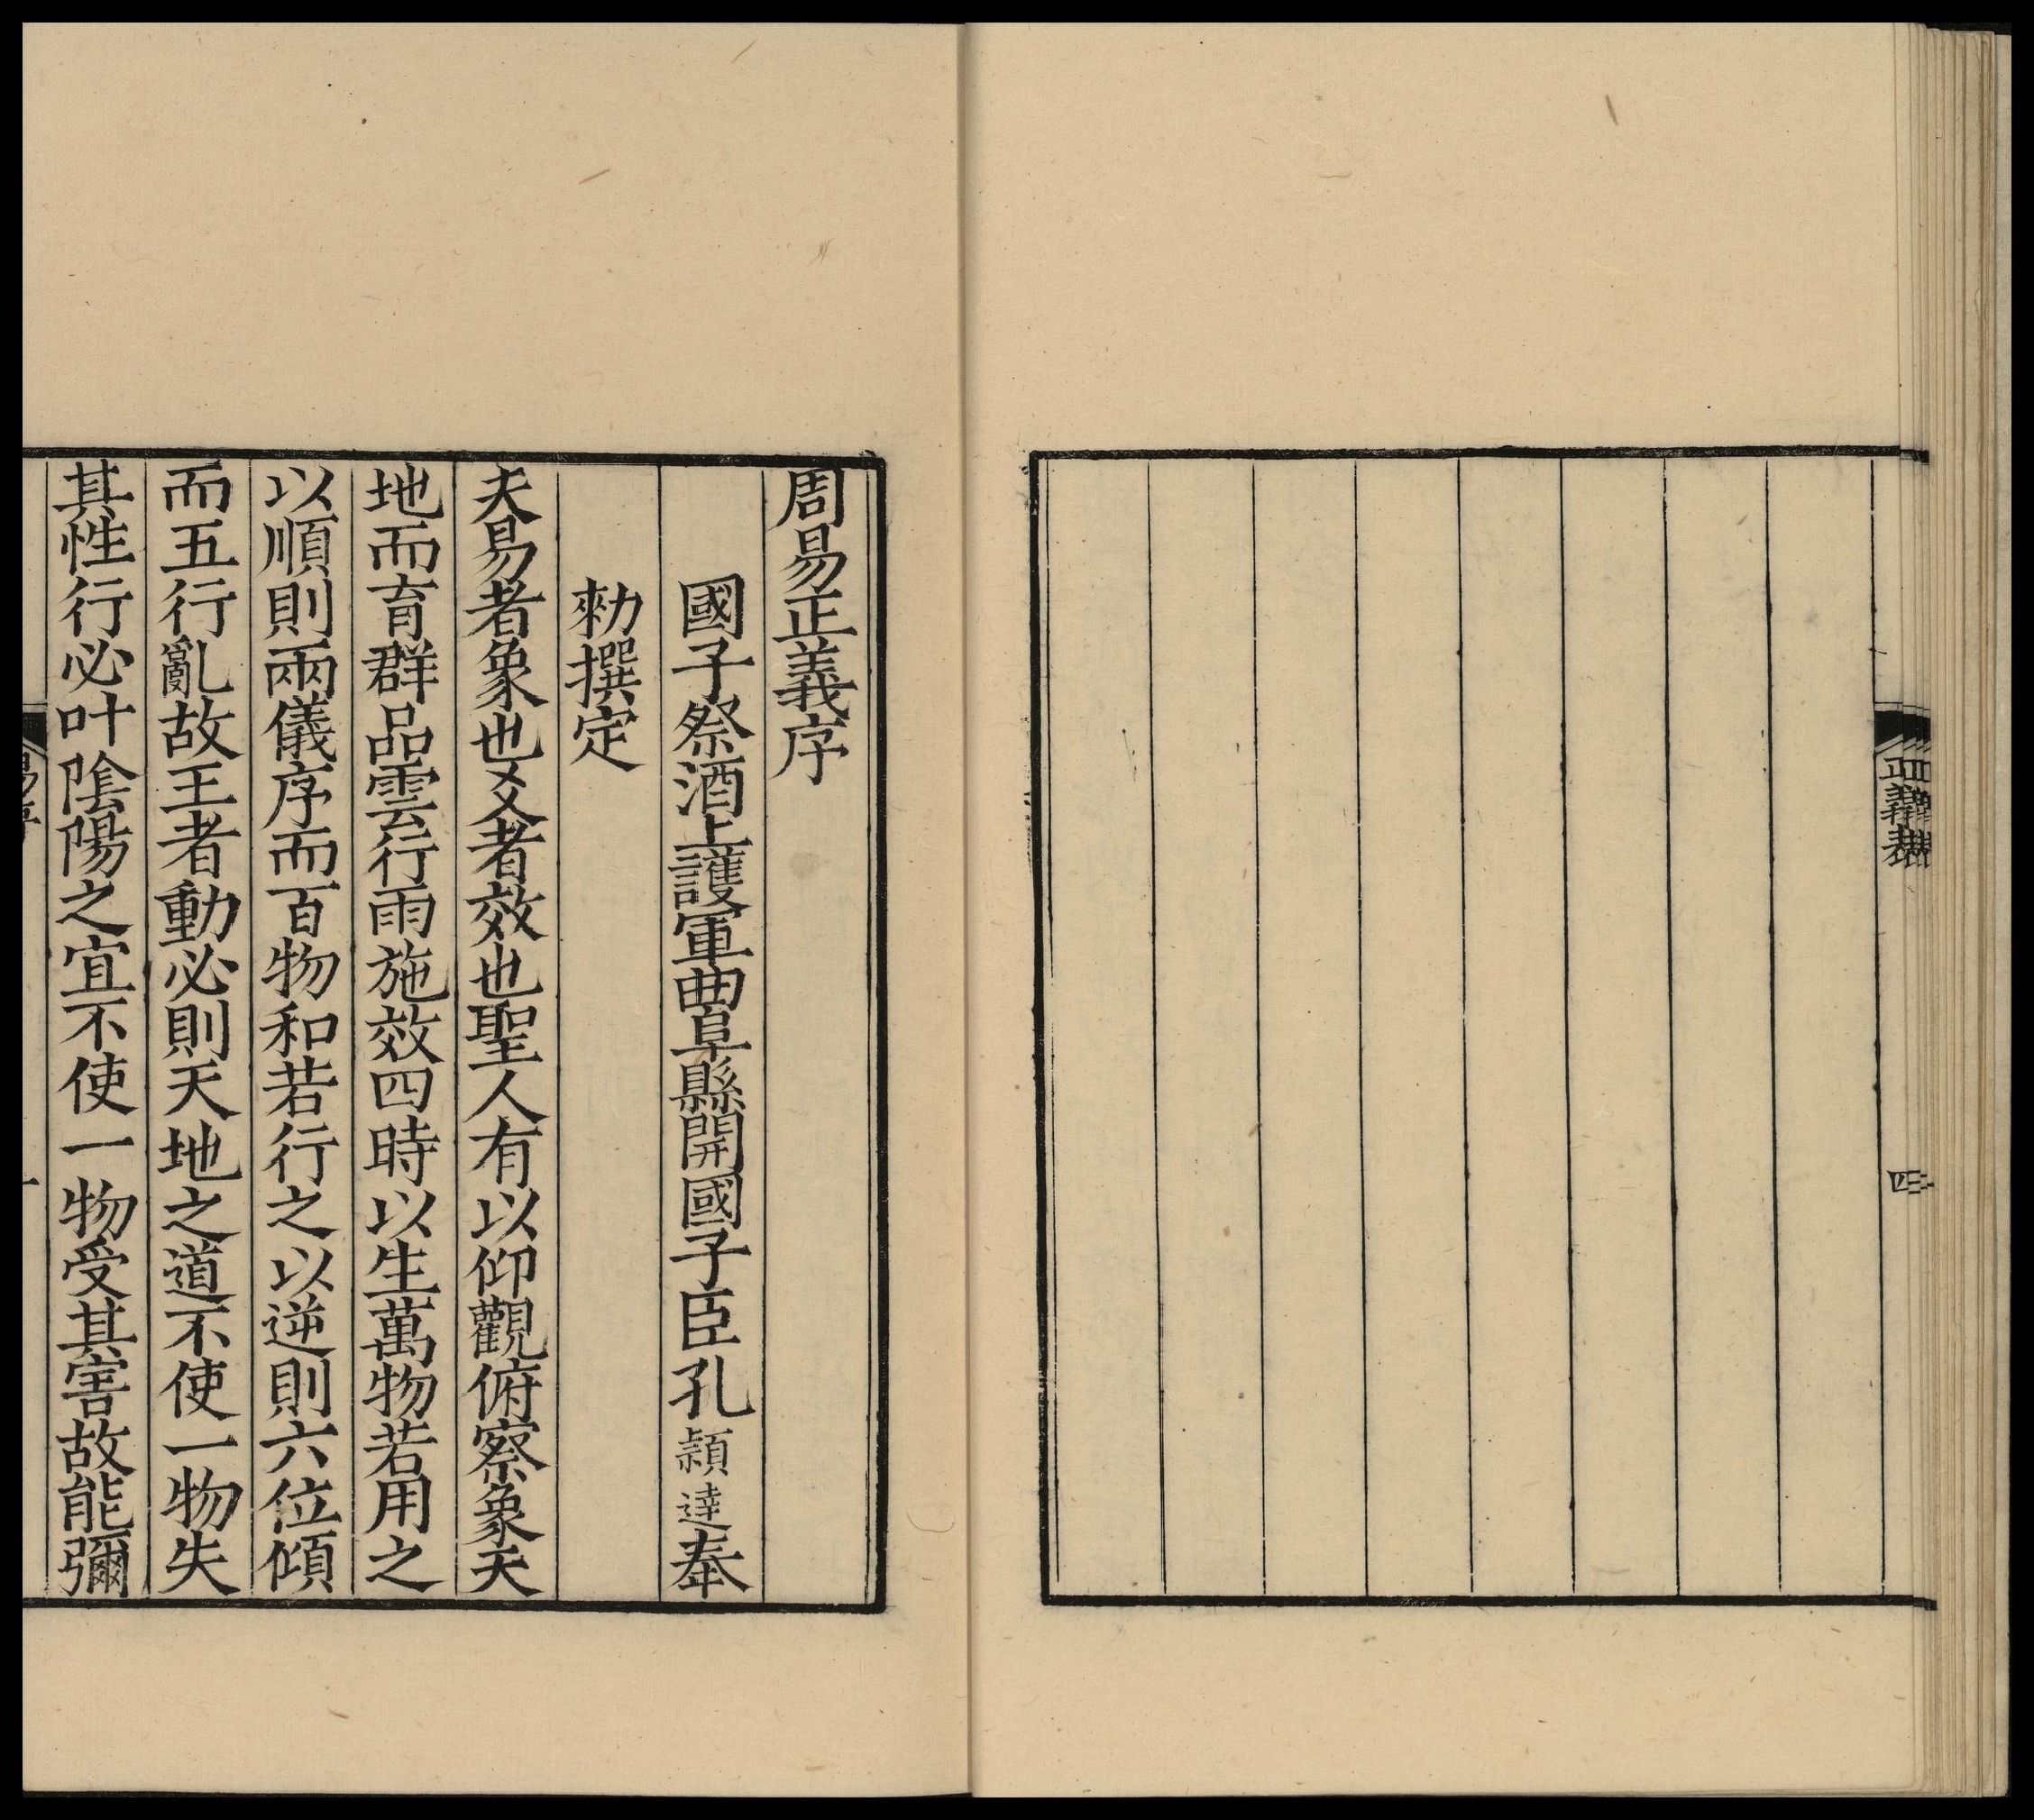 正義表
四
周易正義序
國子祭酒上護軍曲阜縣開國子臣孔穎達奉
勑撰定
夫易者象也爻者效也聖人有以仰觀俯察象天
地而育群品雲行雨施效四時以生萬物若用之
以順則兩儀序而百物和若行之以逆則六位傾
而五行亂故王者動必則天地之道不使一物失
其性行必叶隂陽之宜不使一物受其害故能彌